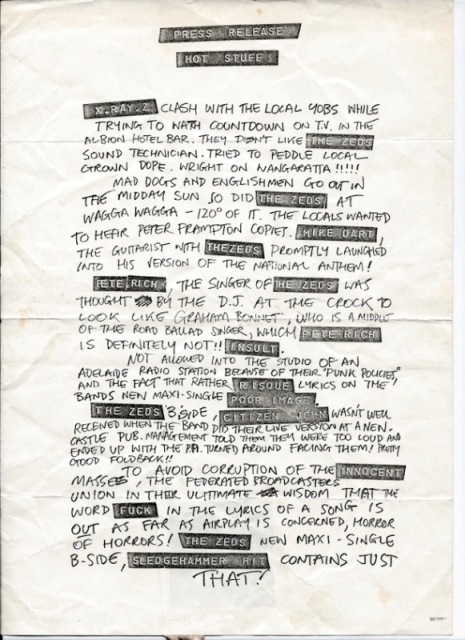 PRESS RELEASE
HOT STUFF
X.RAY.Z CLASH WITH THE LOCAL YOBS WHILE
TRYING TO WATH COUNTDOWN ON T.V. IN THE
ALBION HOTEL BAR. THEY DIDN'T LIKE THE ZEDS
SOUND TECHNICIAN. TRIED TO PEDDLE LOCAL
GROWN DOPE. WRIGHT ON NANGARATTA !!!!!
MAD DOGS AND ENGLISHMEN GO OUT IN
THE MIDDAY SUN SO DID THE ZEDS AT
WAGGA WAGGA - 120° OF IT. THE LOCALS WANTED
TO HEAR PETER FRAMPTON COPIET. MIKE DART,
THE GUITARIST WITH THE ZEDS PROMPTLY LAUNCHED
INTO HIS VERSION OF THE NATIONAL ANTHEM!
PETE RICH, THE SINGER OF THE ZEDS WAS
THOUGHT BY THE D.J. AT THE CROCK TO
LOOK LIKE GRAHAM BONNET, WHO IS A MIDDLE
OF THE ROAD BALLAD SINGER, WHICH PETE RICH
IS DEFINITELY NOT!! INSULT.
NOT ALLOWED INTO THE STUDIO OF AN
ADELAIDE RADIO STATION BECAUSE OF THEIR "PUNK POLICIES"
AND THE FACT THAT RATHER RISQUE LYRICS ON THE,
BANDS NEW MAXI-SINGLE POOR IMAGE
THE ZEDS B'SIDE, CITIZEN JOHN WASN'T WELL
RECEIVED WHEN THE BAND DID THEIR LIVE VERSION AT A NEW-
CASTLE PUB. MANAGEMENT TOLD THEM THEM WERE TOO LOUD AND
ENDED UP WITH THE P.A. TURNED AROUND FACING THEM! PRETTY
GOOD FOLDBACK!!
TO AVOID CORRUPTION OF THE INNOCENT
MASSES, THE FEDERATED BROADCASTERS
UNION IN THEIR ULITIMATE WISDOM THAT THE
WORD FUCK IN THE LYRICS OF A SONG IS
OUT AS FAR AS AIRPLAY IS CONCERNED, HORROR
OF HORRORS! THE ZEDS NEW MAXI-SINGLE
B-SIDE, SLEDGEHAMMER HIT CONTAINS JUST
THAT!